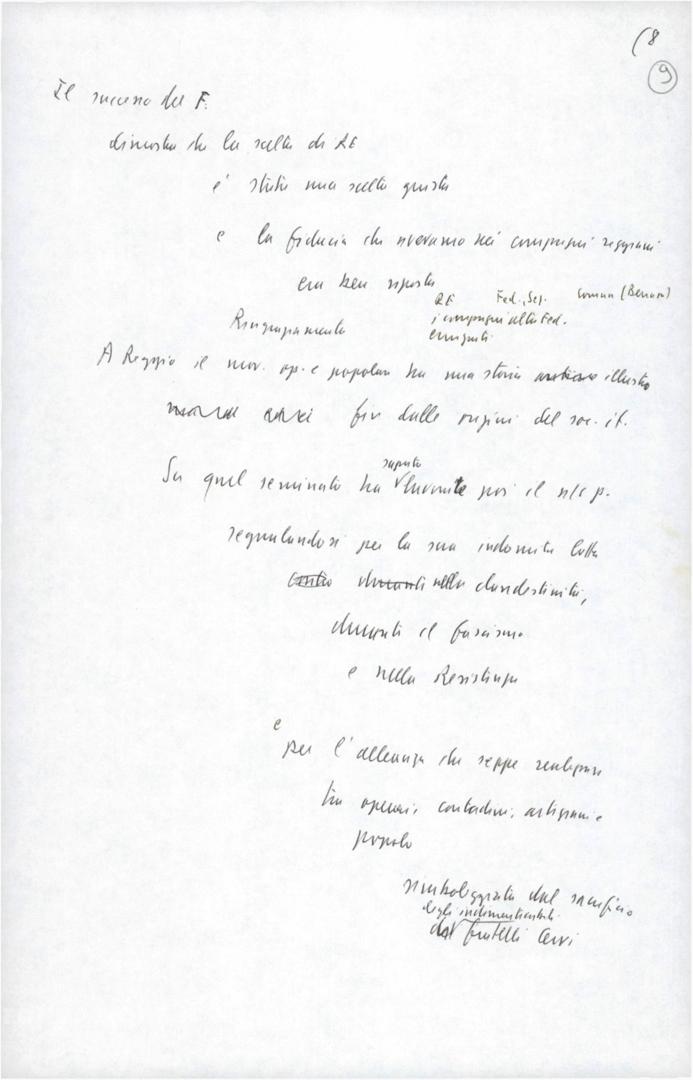 (8
9
Il successo del F.
dimostra che la scelta di RE
e' stata una scelta giusta
e la fiducia che avevamo nei compagni reggiani
era ben riposta
Ringraziamento
RE Fed., Seg. Comun (Bernari)
i compagni alla Fed.
emigrati
A Reggio il mov. op. e popolare ha una storia illustre
fin dalle origini del soc. it.
Su quel seminato ha saputo lavorare poi il n/s p.
segnalandosi per la sua indomita lotta
contro durante nella clandestinità,
durante il fascismo
e nella Resistenza
e
per l'alleanza che seppe realizzare
tra operai, contadini, artigiani e
popolo
simboleggiata dal sacrificio
degli indimenticabili
fratelli Cervi